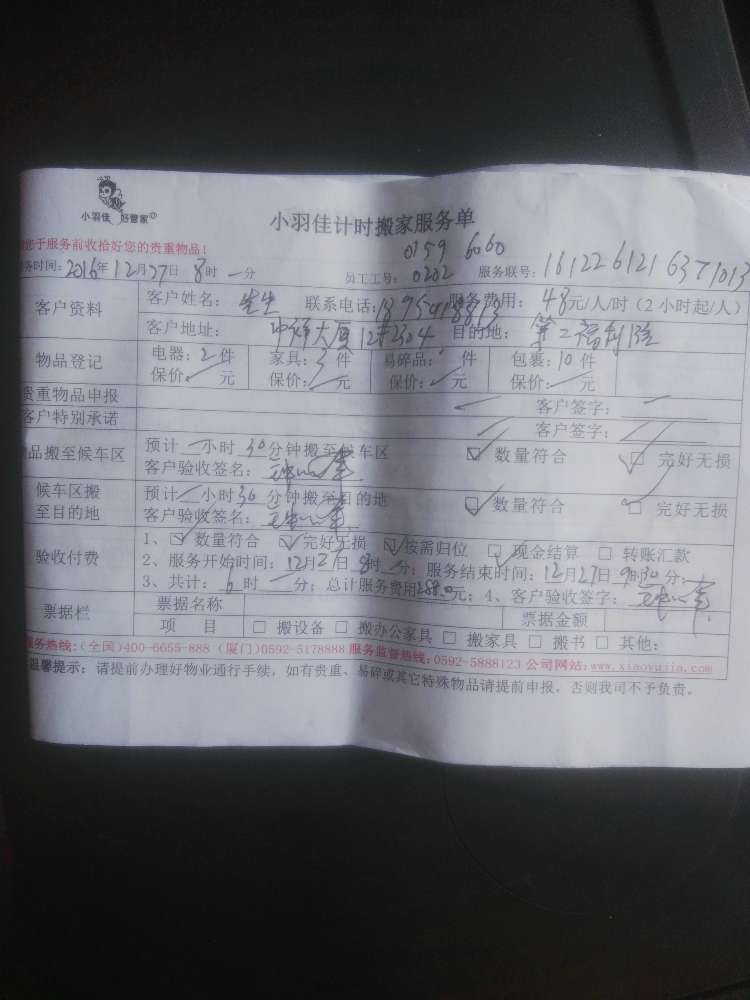 小羽佳 好管家
小羽佳计时搬家服务单
您于服务前收拾好您的贵重物品!
0159 6060
务时间: 2016年12月27日 8时 一分 员工工号: 0202 服务联号: 161226121637 1013
客户资料 客户姓名: 生生 联系电话: 服务费用: 48元/人/时 (2小时起/人)
客户地址: 目的地: 第二福利院
物品登记 电器: 2件 家具: 3件 易碎品: 件 包裹: 10件
保价: 元 保价: 元 保价: 元 保价: 元
贵重物品申报 客户签字:
客户特别承诺 客户签字:
品搬至候车区 预计 一小时 30分钟搬至候车区 ☑ 数量符合 ☑ 完好无损
客户验收签名:
候车区搬 预计 一小时 30分钟搬至目的地 ☑ 数量符合 ☑ 完好无损
至目的地 客户验收签名:
验收付费 1、☑ 数量符合 ☑ 完好无损 ☑ 按需归位 ☑ 现金结算 □ 转账汇款
2、服务开始时间: 12月27日 8时 分; 服务结束时间: 12月27日 9时30分;
3、共计: 6时 一分; 总计服务费用288.0元; 4、客户验收签字:
票据栏 票据名称 票据金额
项 目 □ 搬设备 □ 搬办公家具 □ 搬家具 □ 搬书 □ 其他:
服务热线:(全国)400-6655-888 (厦门)0592-5178888 服务监督热线:0592-5888123 公司网站:www.xiaoyujia.com
温馨提示: 请提前办理好物业通行手续, 如有贵重、易碎或其它特殊物品请提前申报, 否则我司不予负责。